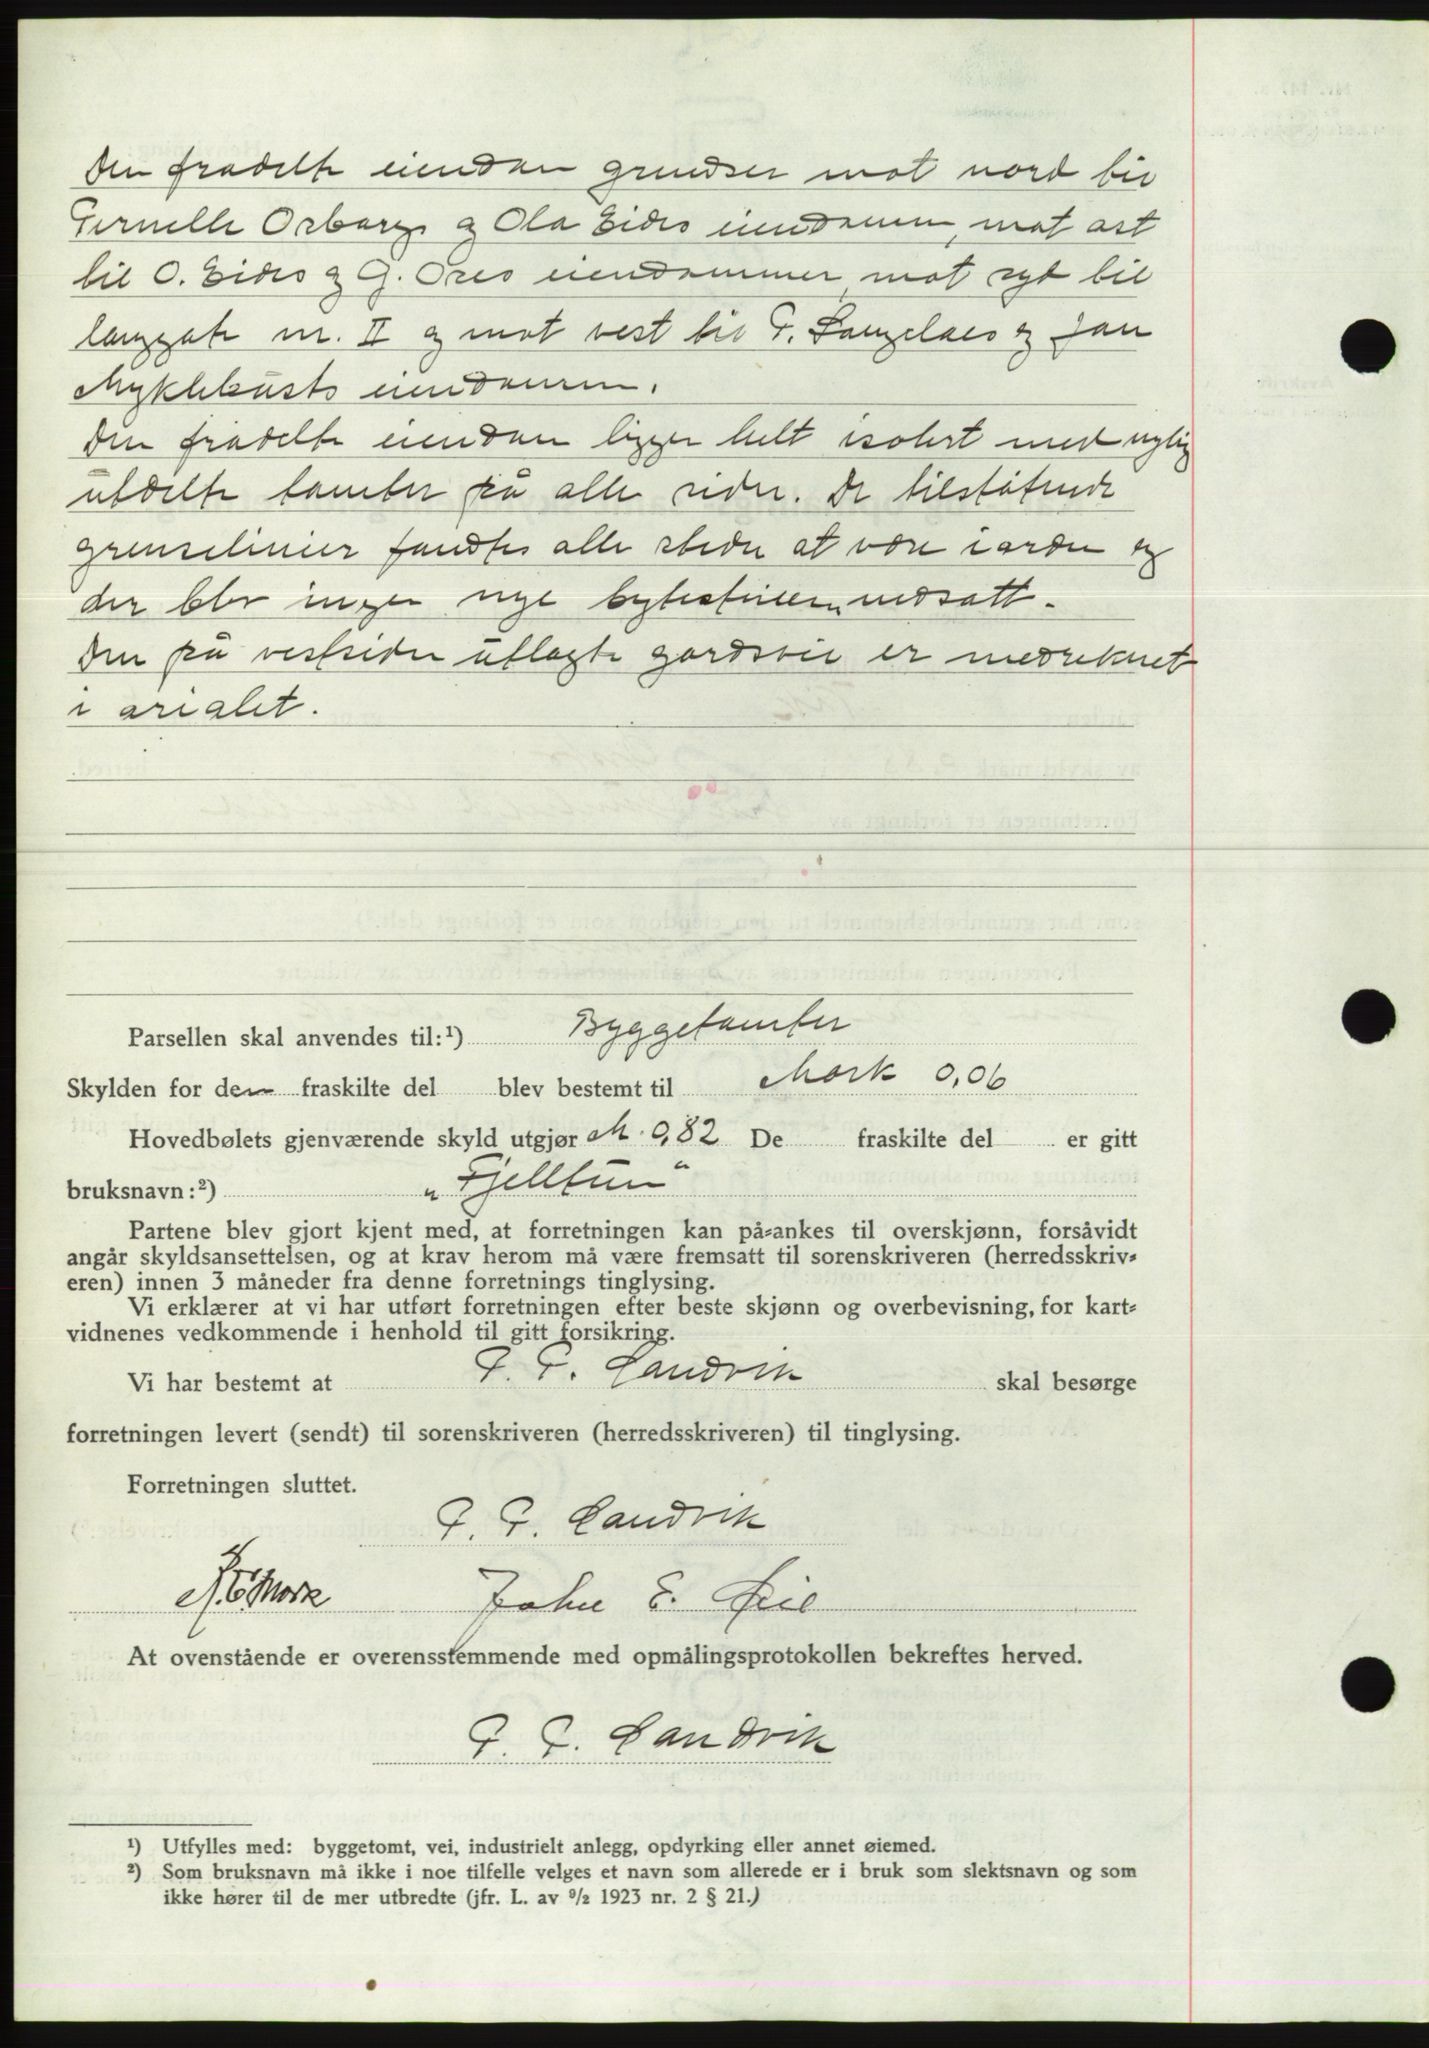 Den fradelte eiendom grendser mot nord til
Pernelle Osborgs og Ola Eides eiendomm, mot øst
til O. Eides og G. Ores eiendommer, mot syd til
langgate nr. II og mot vest til P. og Jon
Myklebusts eiendomm.
Den fradelte eiendom ligger helt isolert med nylig
utdelte tomter på alle sider. De tilstøtende
grenselinier fandtes alle steder at være i orden og
der blev ingen nye bytesteiner nedsatt.
Den på vestsiden utlagte gardsvei er medreknet
i arialet.
Parsellen skal anvendes til:¹) Byggetomter
Skylden for den fraskilte del blev bestemt til Mark 0,06
Hovedbølets gjenværende skyld utgjør M. 0,82 De fraskilte del er gitt
bruksnavn:²) „Fjelltun"
Partene blev gjort kjent med, at forretningen kan på-ankes til overskjønn, forsåvidt
angår skyldsansettelsen, og at krav herom må være fremsatt til sorenskriveren (herredsskriv-
eren) innen 3 måneder fra denne forretnings tinglysing.
Vi erklærer at vi har utført forretningen efter beste skjønn og overbevisning, for kart-
vidnenes vedkommende i henhold til gitt forsikring.
Vi har bestemt at P. P. Landvik skal besørge
forretningen levert (sendt) til sorenskriveren (herredsskriveren) til tinglysing.
Forretningen sluttet.
P. P. Landvik
Mork John E.
At ovenstående er overensstemmende med opmålingsprotokollen bekreftes herved.
P. P. Landvik
¹) Utfylles med: byggetomt, vei, industrielt anlegg, opdyrking eller annet øiemed.
²) Som bruksnavn må ikke i noe tilfelle velges et navn som allerede er i bruk som slektsnavn og som
ikke hører til de mer utbredte (jfr. L. av 9/2 1923 nr. 2 § 21.)